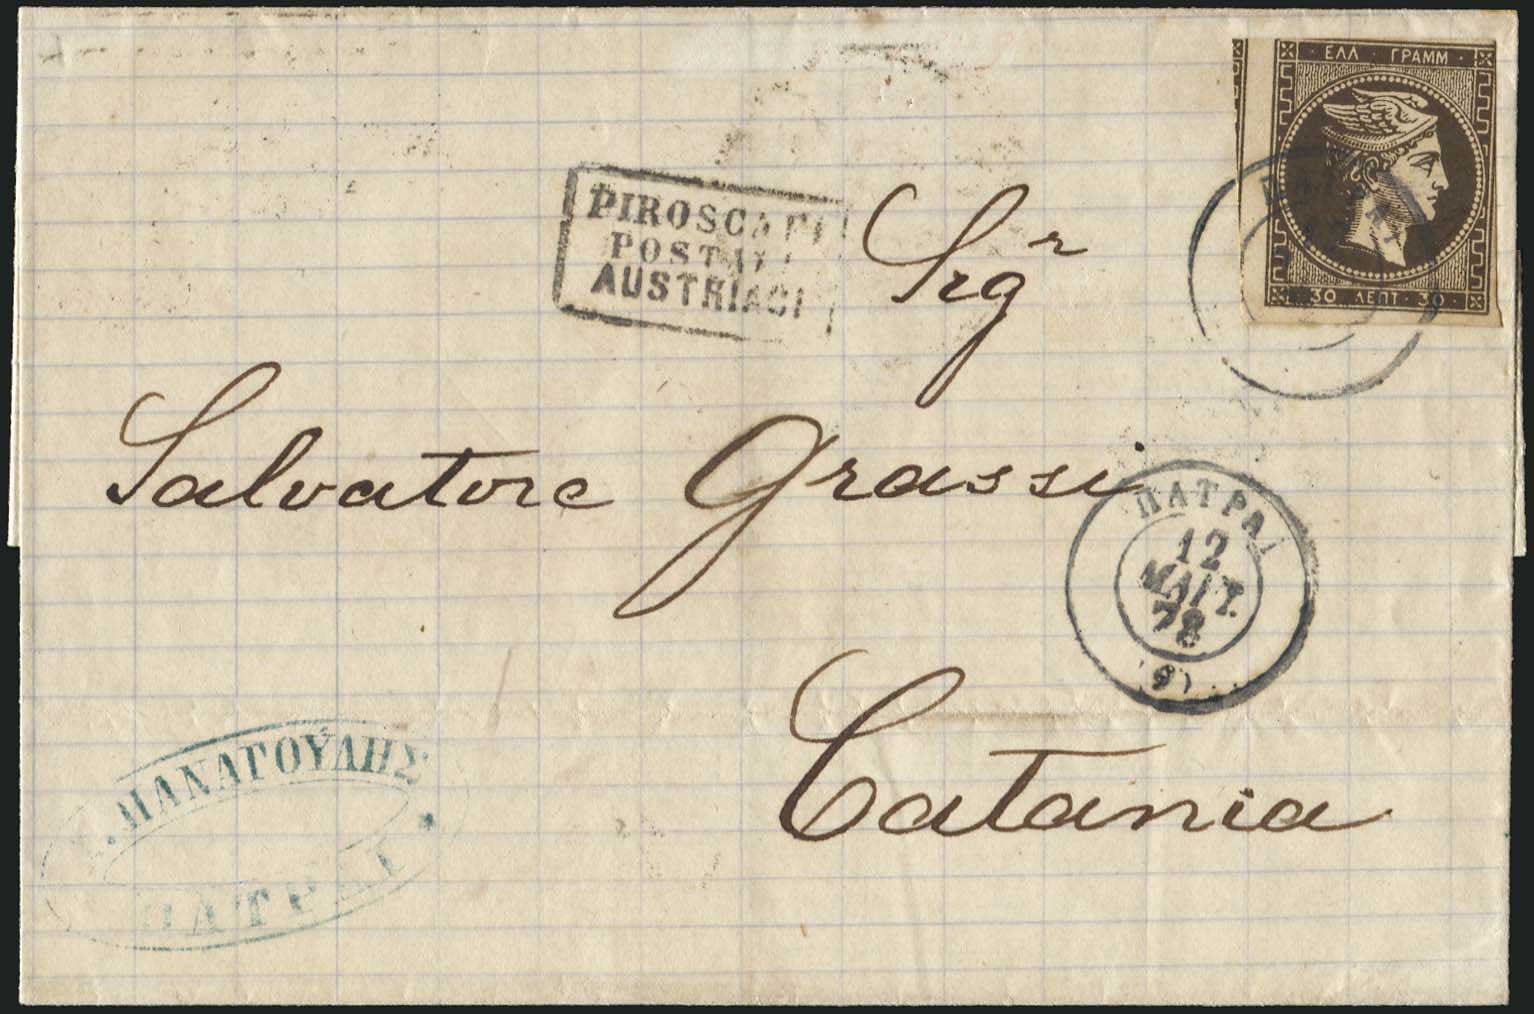 ΕΛΛ · ΓΡΑΜΜ ·
30 ΛΕΠΤ · 30 ·
PIROSCAFI
POSTALI
AUSTRIACI
Sigr
Salvatore Grassi
Catania
ΠΑΤΡΑΙ
12
ΜΑΪΤ.
78
(9)
ΜΑΝΑΓΟΥΛΗΣ
ΠΑΤΡΑΙ